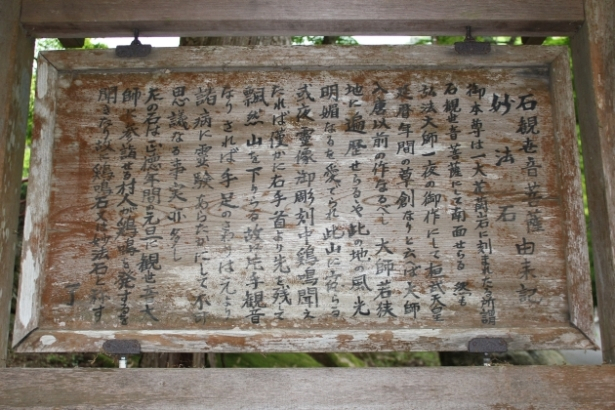 石観世音菩薩由来記
妙法石
御本尊は一大花崗岩に刻まれた所謂
石観世音菩薩にして南面せらる 縁は
弘法大師一夜の御作にして桓武天皇
延暦年間の草創なりと云ば大師
入唐以前の作なるべし 大師若狭
地に遍歴せらるゝや此の地の風光
明媚なるを愛でられ此山に
或夜霊像御彫刻中鶏鳴聞え
たれば僅かに右手首より先を残して
飄然山を下りらる故に片手観音
なり されば手足の は元より
諸病に霊験あらたかにして不可
思議なる事実亦多し
左の石は正徳年間元旦に観世音大
師に参詣する村人が鶏鳴を発するを
聞きたり故に鶏鳴石又は妙法石と称す